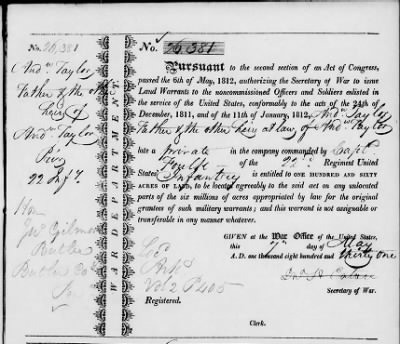 No. 26,381
And.w Taylor
Father & the other
heir of
And.w Taylor
22 Inf.y
Hon
Jn.o Gilmore
Butler
Butler Co
Pa
WAR DEPARTMENT.
No. 26,381
Pursuant to the second section of an Act of Congress,
passed the 6th of May, 1812, authorizing the Secretary of War to issue
Land Warrants to the noncommissioned Officers and Soldiers enlisted
in the service of the United States, conformably to the acts of the 24th of
December, 1811, and of the 11th of January, 1812, And.w Taylor
Father & the other heir at law of And.w Taylor
late a private in the company commanded by Capt
of the 22.d Regiment United
States Infantry is entitled to ONE HUNDRED AND SIXTY
ACRES OF LAND, to be located agreeably to the said act on any unlocated
parts of the six millions of acres appropriated by law for the original
grantees of such military warrants; and this warrant is not assignable or
transferable in any manner whatever.
GIVEN at the War Office of the United States,
this 7th day of May
A. D. one thousand eight hundred and thirty one
Secretary of War.
Loc
Ark
Vol 2 P 405
Registered.
Clerk.